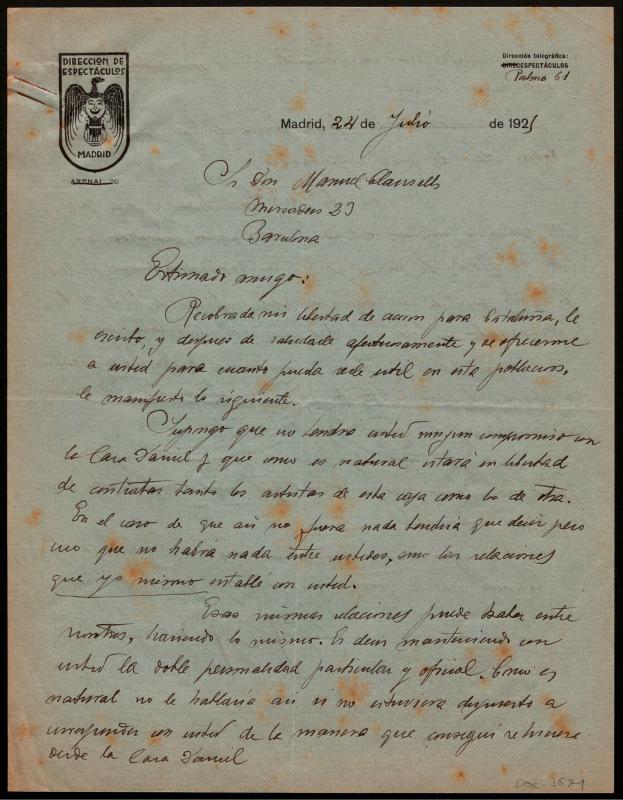 DIRECCION DE
ESPECTÁCULOS
MADRID
ARENAL 20
Dirección telegráfica:
DIRECESPECTÁCULOS
Palma 61
Madrid, 24 de Julio de 1921
Sr Don Manuel Clausells
Mercaders 23
Barcelona
Estimado amigo:
Recobrada mi libertad de accion para Cataluña, le
escribo, y despues de saludarle afectuosamente y de ofrecerme
a usted para cuanto pueda serle util en esta poblacion,
le manifiesto lo siguiente.
Supongo que no tendrá usted ningun compromiso con
la Casa Daniel y que como es natural estará en libertad
de contratar tanto los artistas de esta casa como los de otra.
En el caso de que asi no fuera nada tendria que decir pero
creo que no habrá nada entre ustedes, sino las relaciones
que yo mismo establé con usted.
Esas mismas relaciones puede haber entre
nosotros, haciendo lo mismo. Es decir manteniendo con
usted la doble personalidad particular y oficial. Como es
natural no le hablaria asi si no estuviera dispuesto a
corresponder con usted de la manera que consegui se hiciera
desde la Casa Daniel